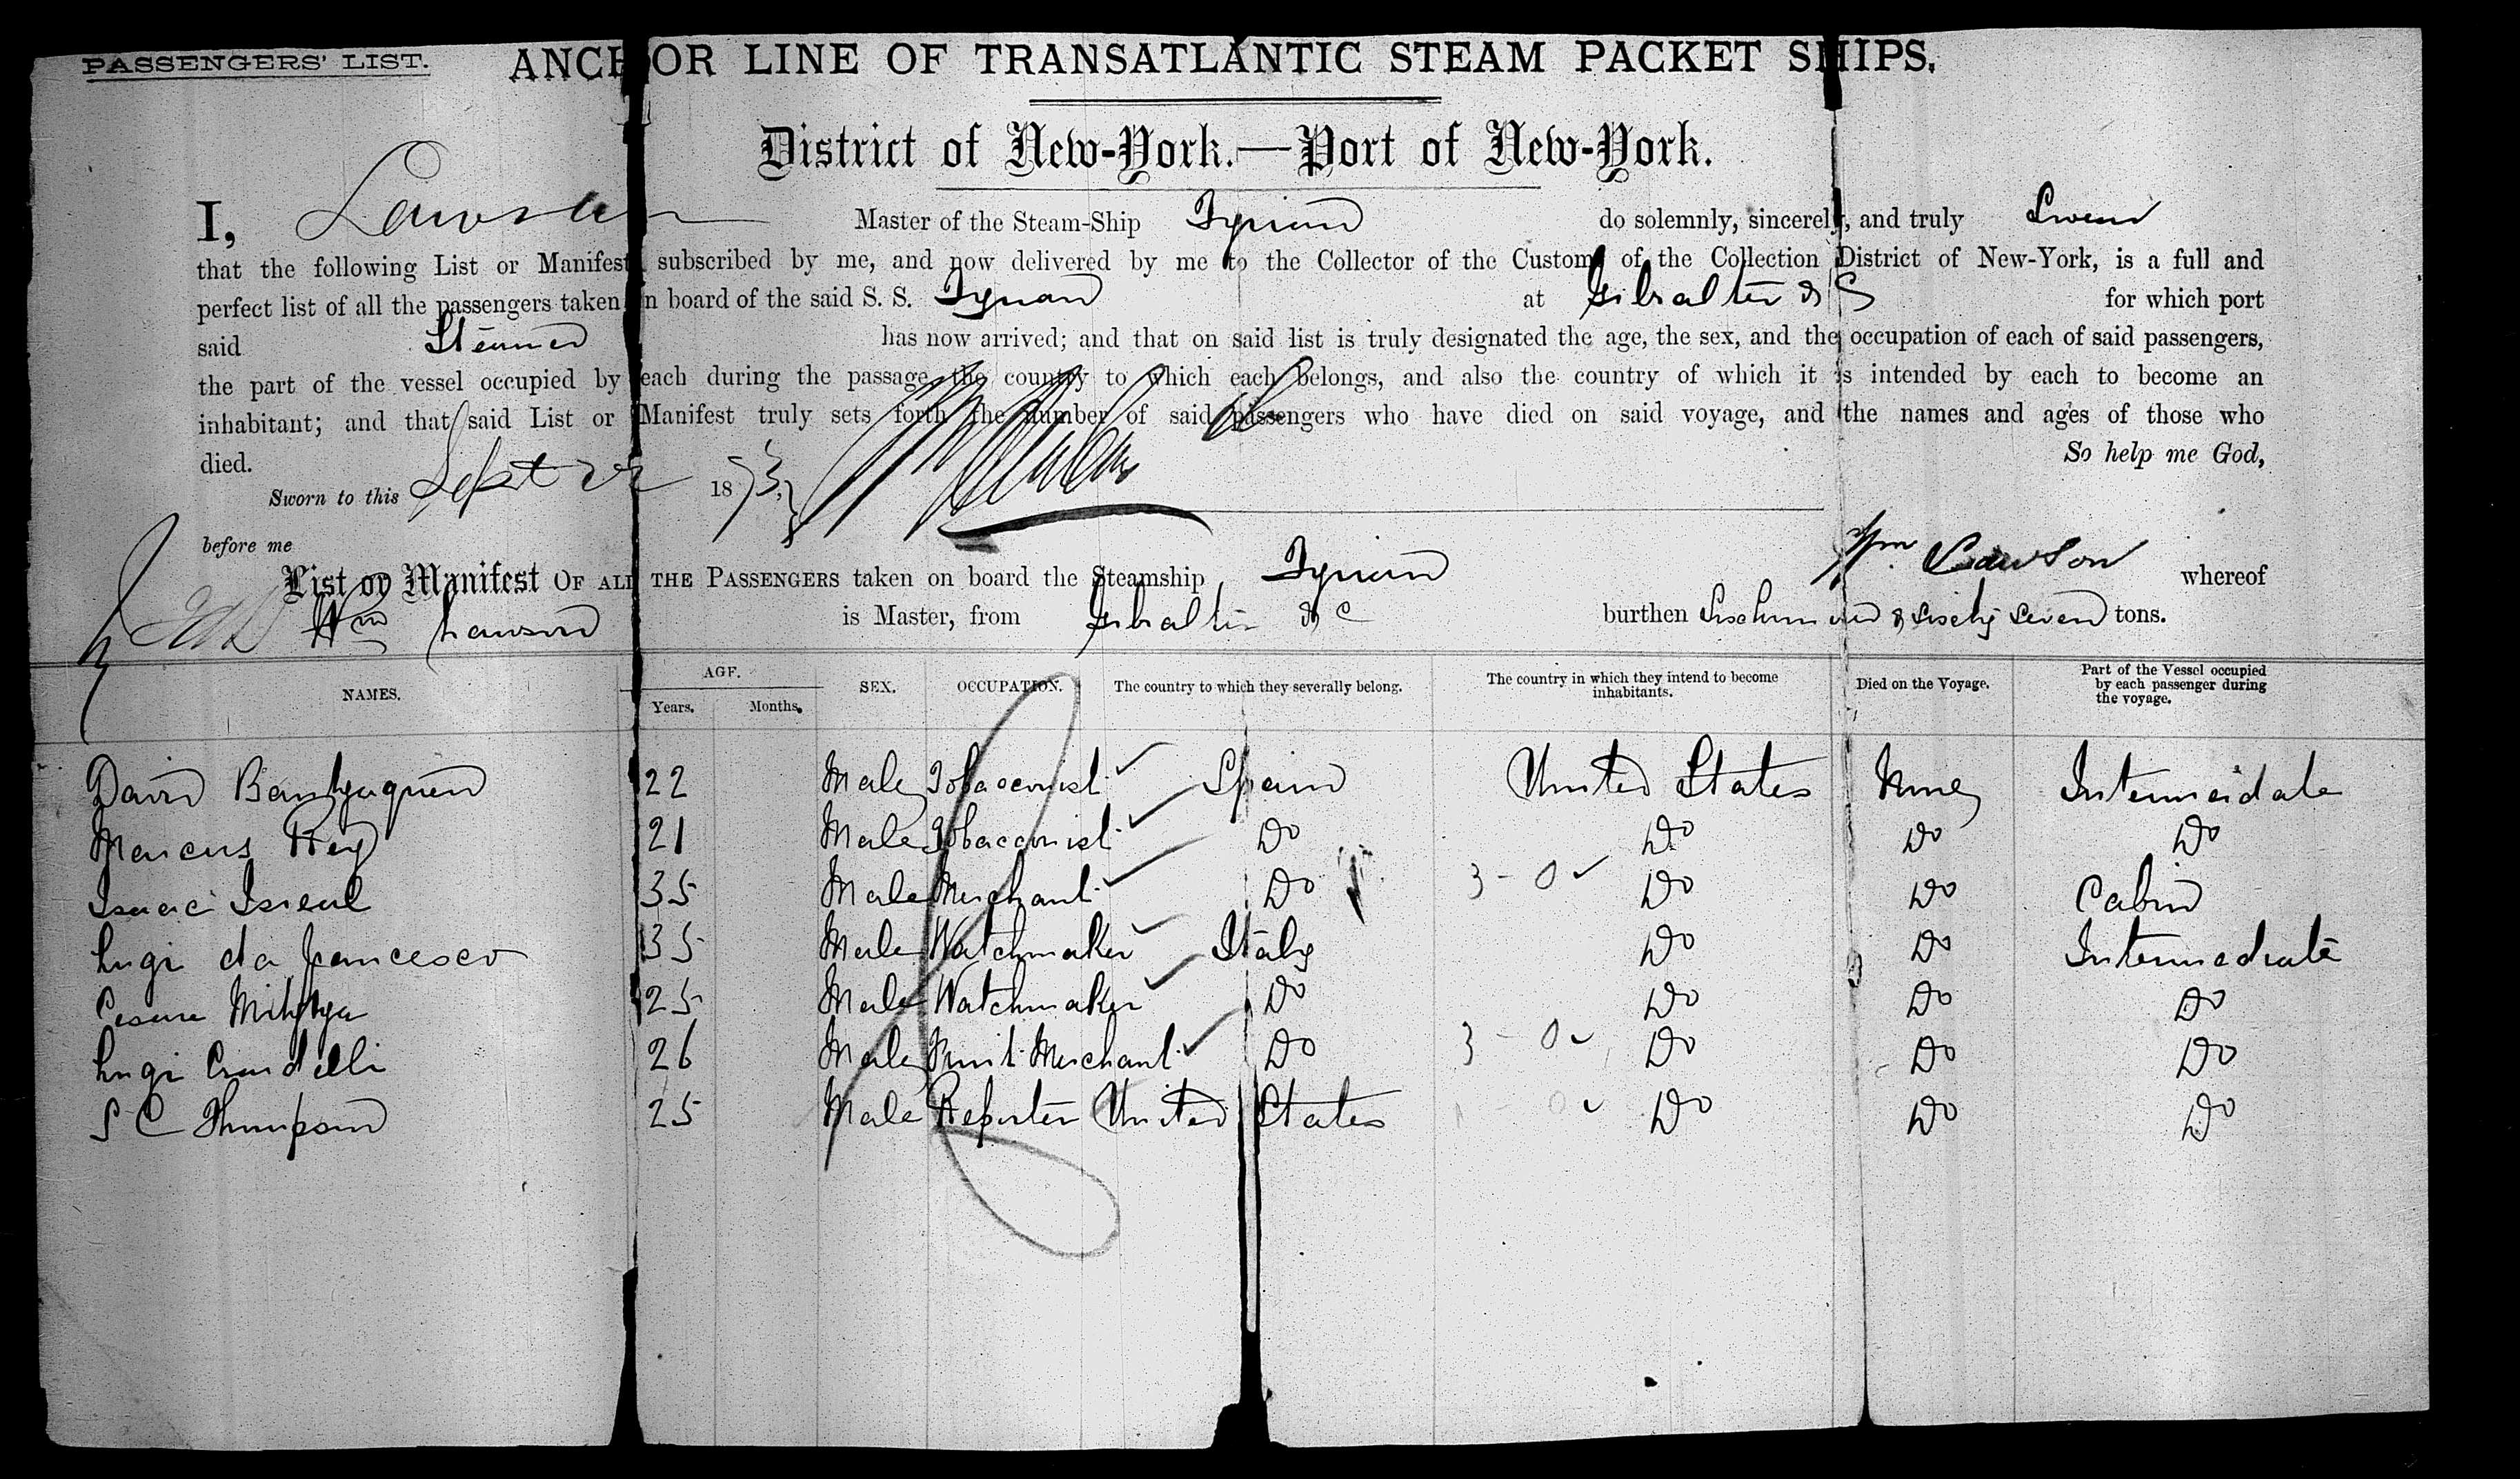 PASSENGERS' LIST. ANCHOR LINE OF TRANSATLANTIC STEAM PACKET SHIPS.
District of New-York.—Port of New-York.
I, Lawson Master of the Steam-Ship Tyrian do solemnly, sincerely, and truly Swear
that the following List or Manifest subscribed by me, and now delivered by me to the Collector of the Customs of the Collection District of New-York, is a full and
perfect list of all the passengers taken on board of the said S. S. Tyrian at Gibralter &c for which port
said Steamer has now arrived; and that on said list is truly designated the age, the sex, and the occupation of each of said passengers,
the part of the vessel occupied by each during the passage, the country to which each belongs, and also the country of which it is intended by each to become an
inhabitant; and that said List or Manifest truly sets forth the number of said passengers who have died on said voyage, and the names and ages of those who
died. So help me God,
Sworn to this Sept 22 1873,
before me Wm Lawson
List or Manifest OF ALL THE PASSENGERS taken on board the Steamship Tyrian whereof
Wm Lawson is Master, from Gibralter &c burthen & Sixty Seven tons.
NAMES. AGE. Years. Months. SEX. OCCUPATION. The country to which they severally belong. The country in which they intend to become inhabitants. Died on the Voyage. Part of the Vessel occupied by each passenger during the voyage.
David 22 Male Tobacconist Spain United States None Intermeidate
Marcus Rey 21 Male Tobacconist Do Do Do Do
Isaac Isreal 35 Male Merchant Do 3 - 0 Do Do Cabin
Luigi da Francesco 35 Male Watchmaker Italy Do Do Intermediate
Cesare 25 Male Watchmaker Do Do Do Do
Luigi 26 Male Fruit Merchant Do 3 - 0 Do Do Do
S C Thompson 25 Male Reporter United States 0 Do Do Do